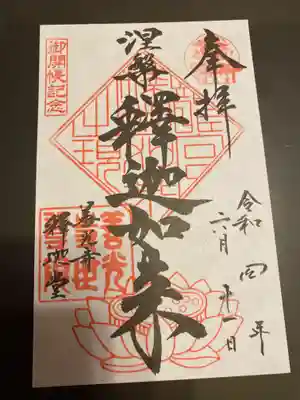 奉拝
令和四年
六月十一日
涅槃
釋迦如来
善光寺
釋迦堂
御開帳記念